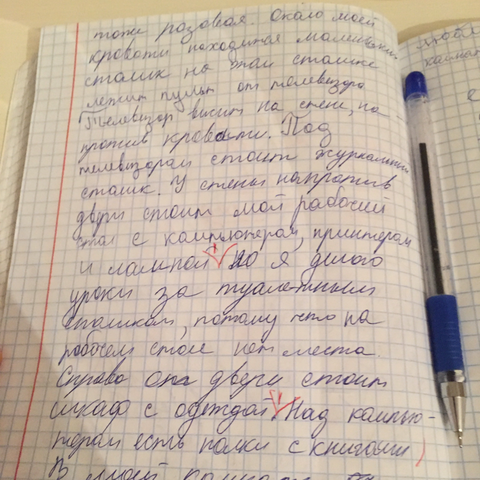 тоже розовая. Около моей
кровати находится маленький
столик на том столике
лежит пульт от телевизора
Телевизор висит на стене, на
против кровати. Под
телевизорам стоит журнальный
столик. У стены напротив
двери стоит мой рабочий
стол с компьютерам, принтерам
и лампой. Но я делаю
уроки за туалетным
столиком, потому что на
рабочем столе нет места.
Справа от двери стоит
шкаф с одеждой. Над компью-
терам есть полки с книгами
В моей комнате